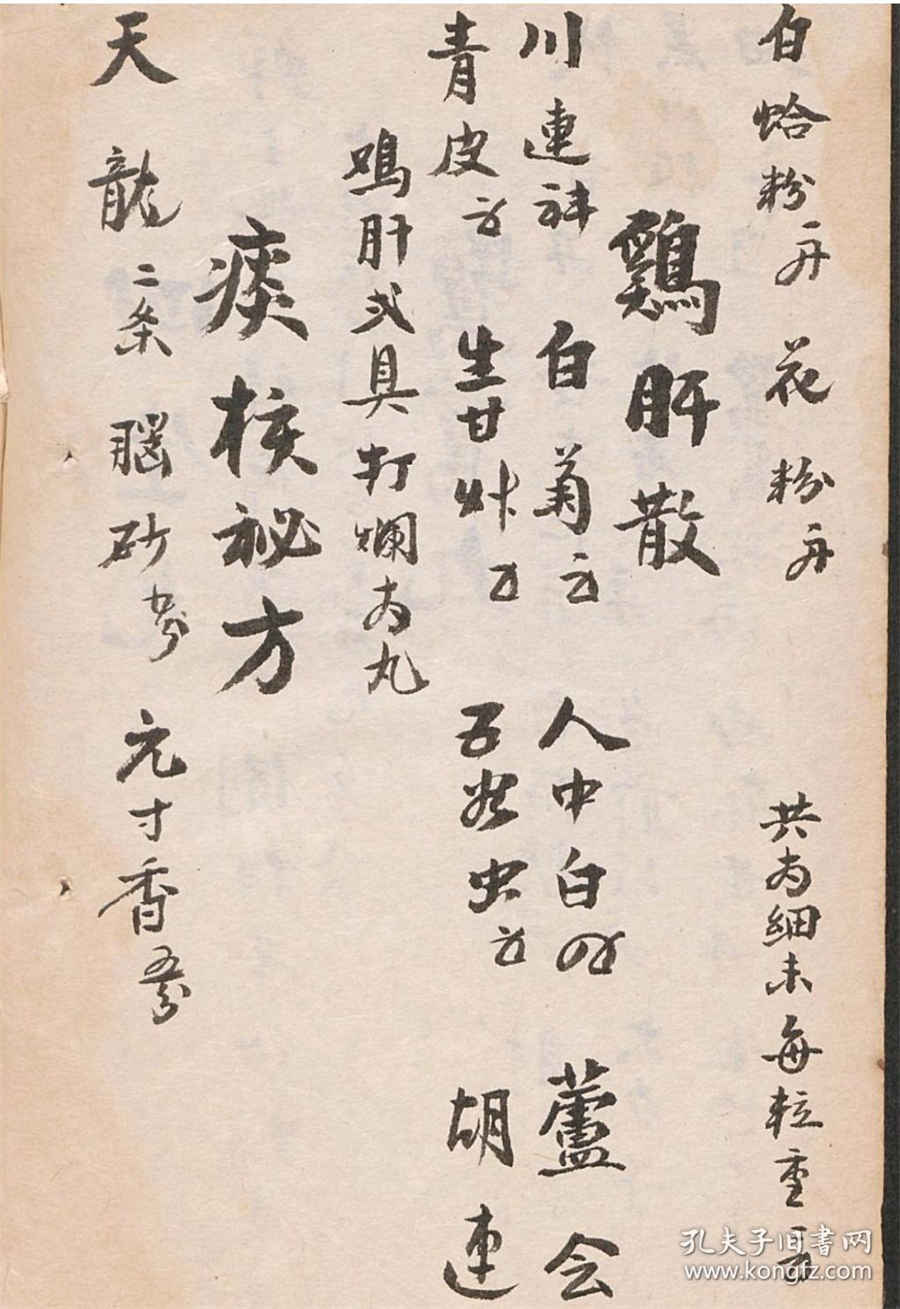 白蛤粉 花粉 共为細末每粒重
鷄肝散
川連 白菊 人中白 蘆会
青皮 生甘 五谷虫 胡連
鸡肝弍具打爛为丸
痰核祕方
天龍二条 脑砂 元寸香
孔夫子旧书网
www.kongfz.com